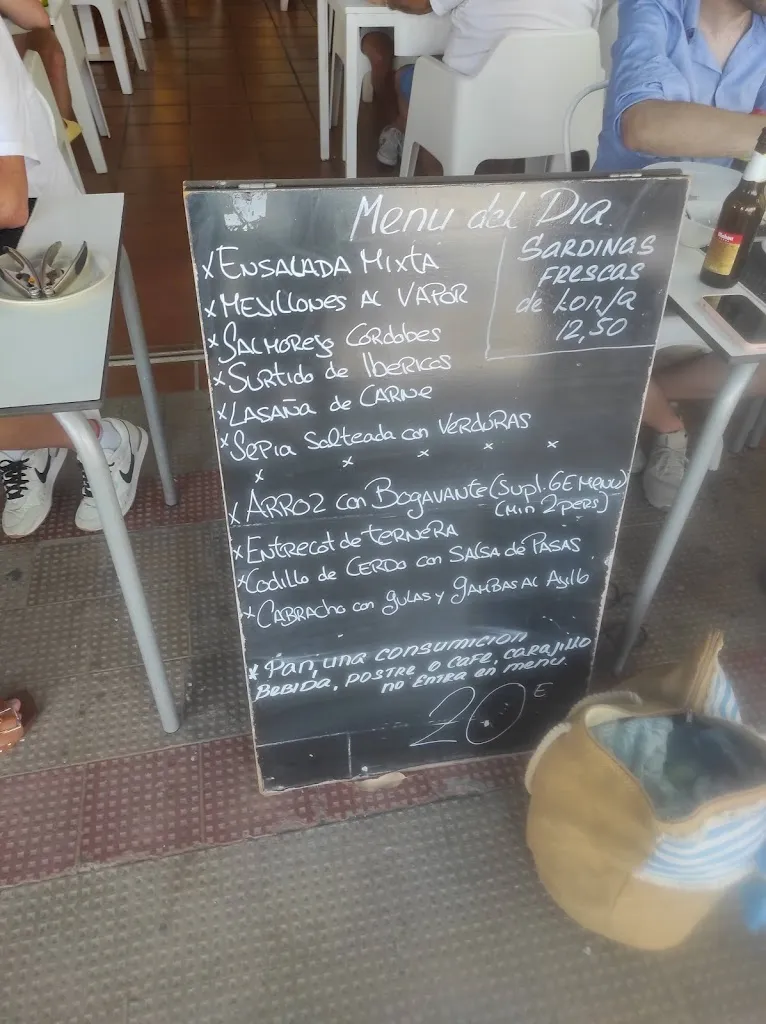 Menu del DIA
x ENSALADA MIXTA
x MEJILLONES AL VAPOR
x SALMOREJO CORDOBES
x SURTIDO de IBERICOS
x LASAÑA de CARNE
x SEPIA Salteada con VERDURAS
x x x x x
x ARROZ con BOGAVANTE (Supl. 6E MENU)
(MIN 2 PERS)
x ENTRECOT de TERNERA
x Codillo de CERDO con SALSA de PASAS
x CABRACHO con GULAS y GAMBAS AL AJILLO
x Pan, una CONSUMICION
BEBIDA, POSTRE O CAFE, CARAJILLO
NO ENTRA en menu.
20 E
SARDINAS
FRESCAS
de Lonja
12,50